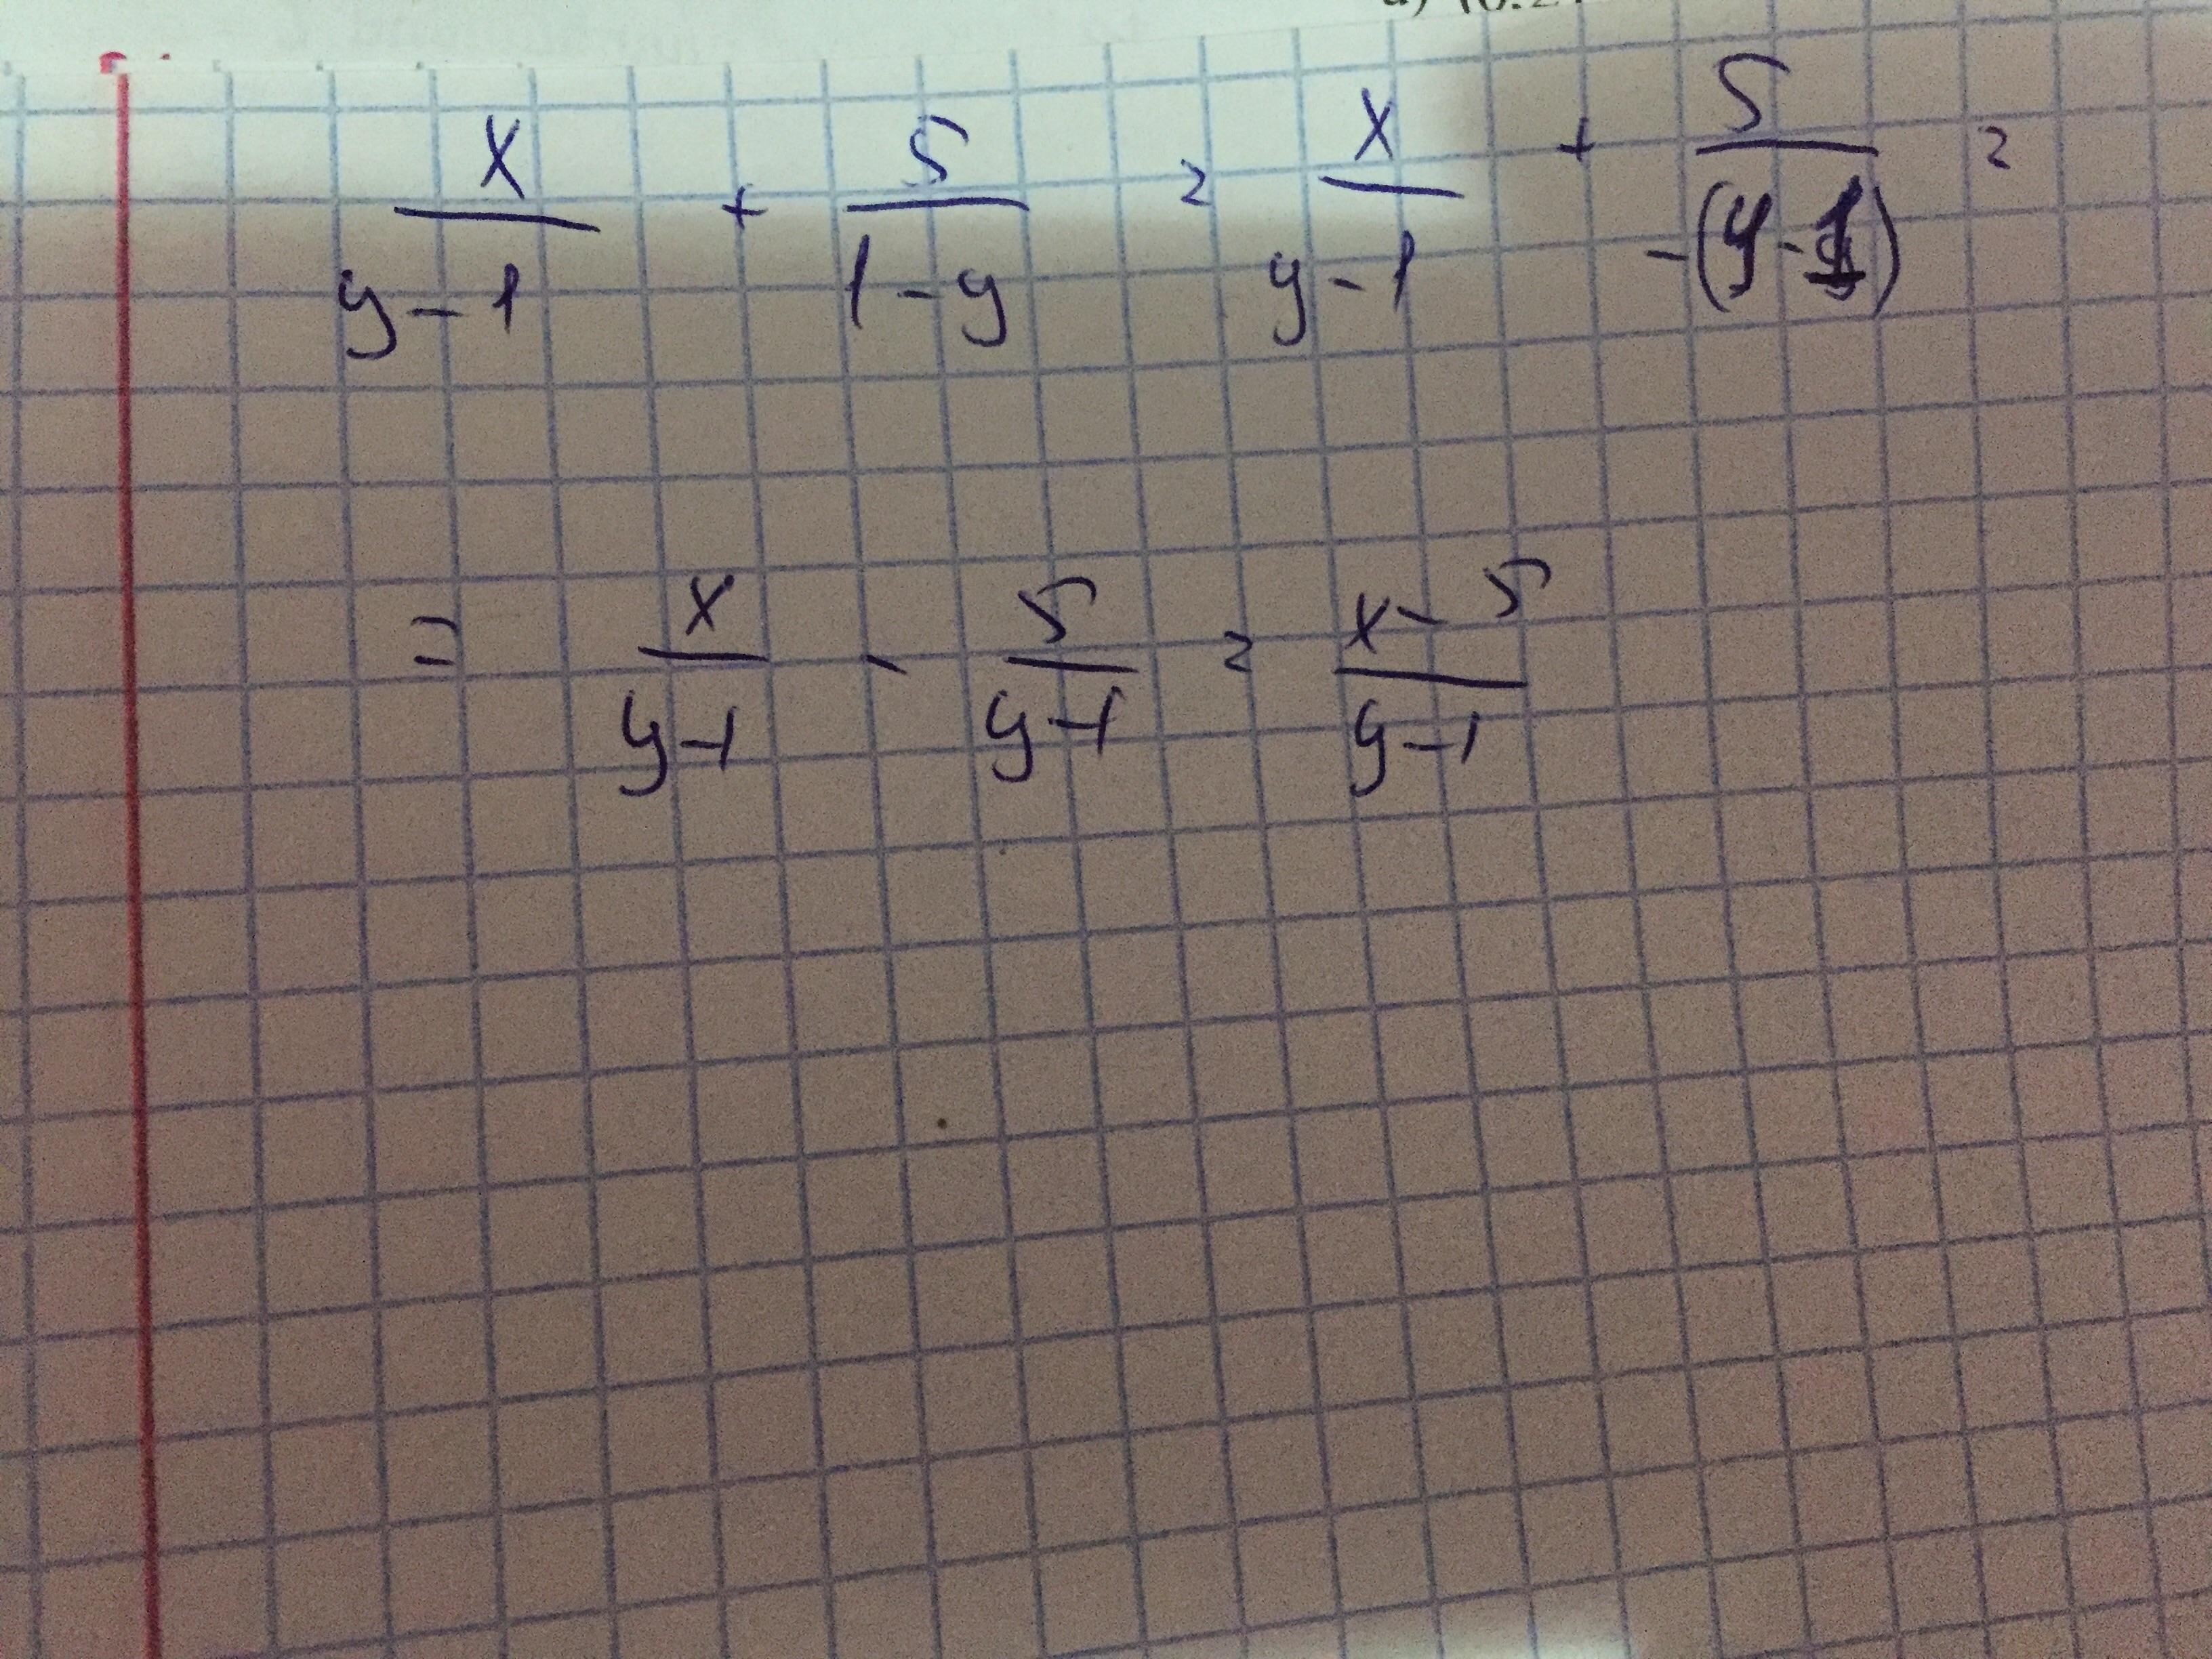 x/(y-1) + 5/(1-y) = x/(y-1) + 5/(-(y-1)) =
= x/(y-1) - 5/(y-1) = (x-5)/(y-1)